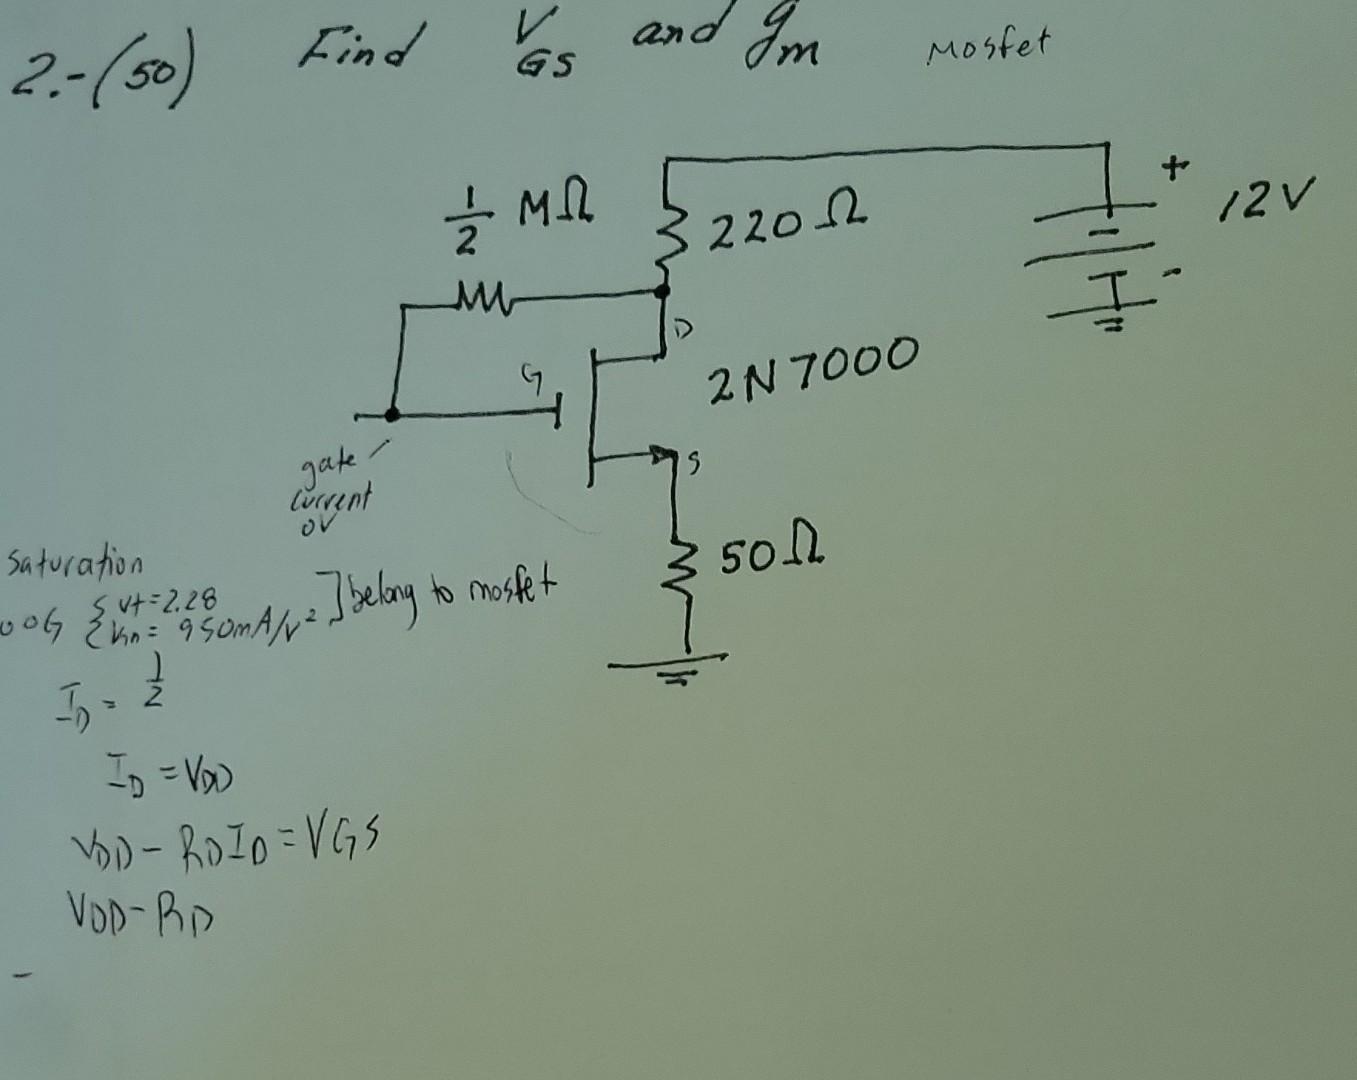 2.-(50) Find VGS and gm Mosfet
1/2 MΩ
220Ω
+
12V
-
D
G
2N7000
S
gate
current
0V
50Ω
Saturation
00G { Vt=2.28
{ = 950mA/V² ] belong to mosfet
ID = 1/2
ID = VDD
VDD - RDID = VGS
VDD - RD
-